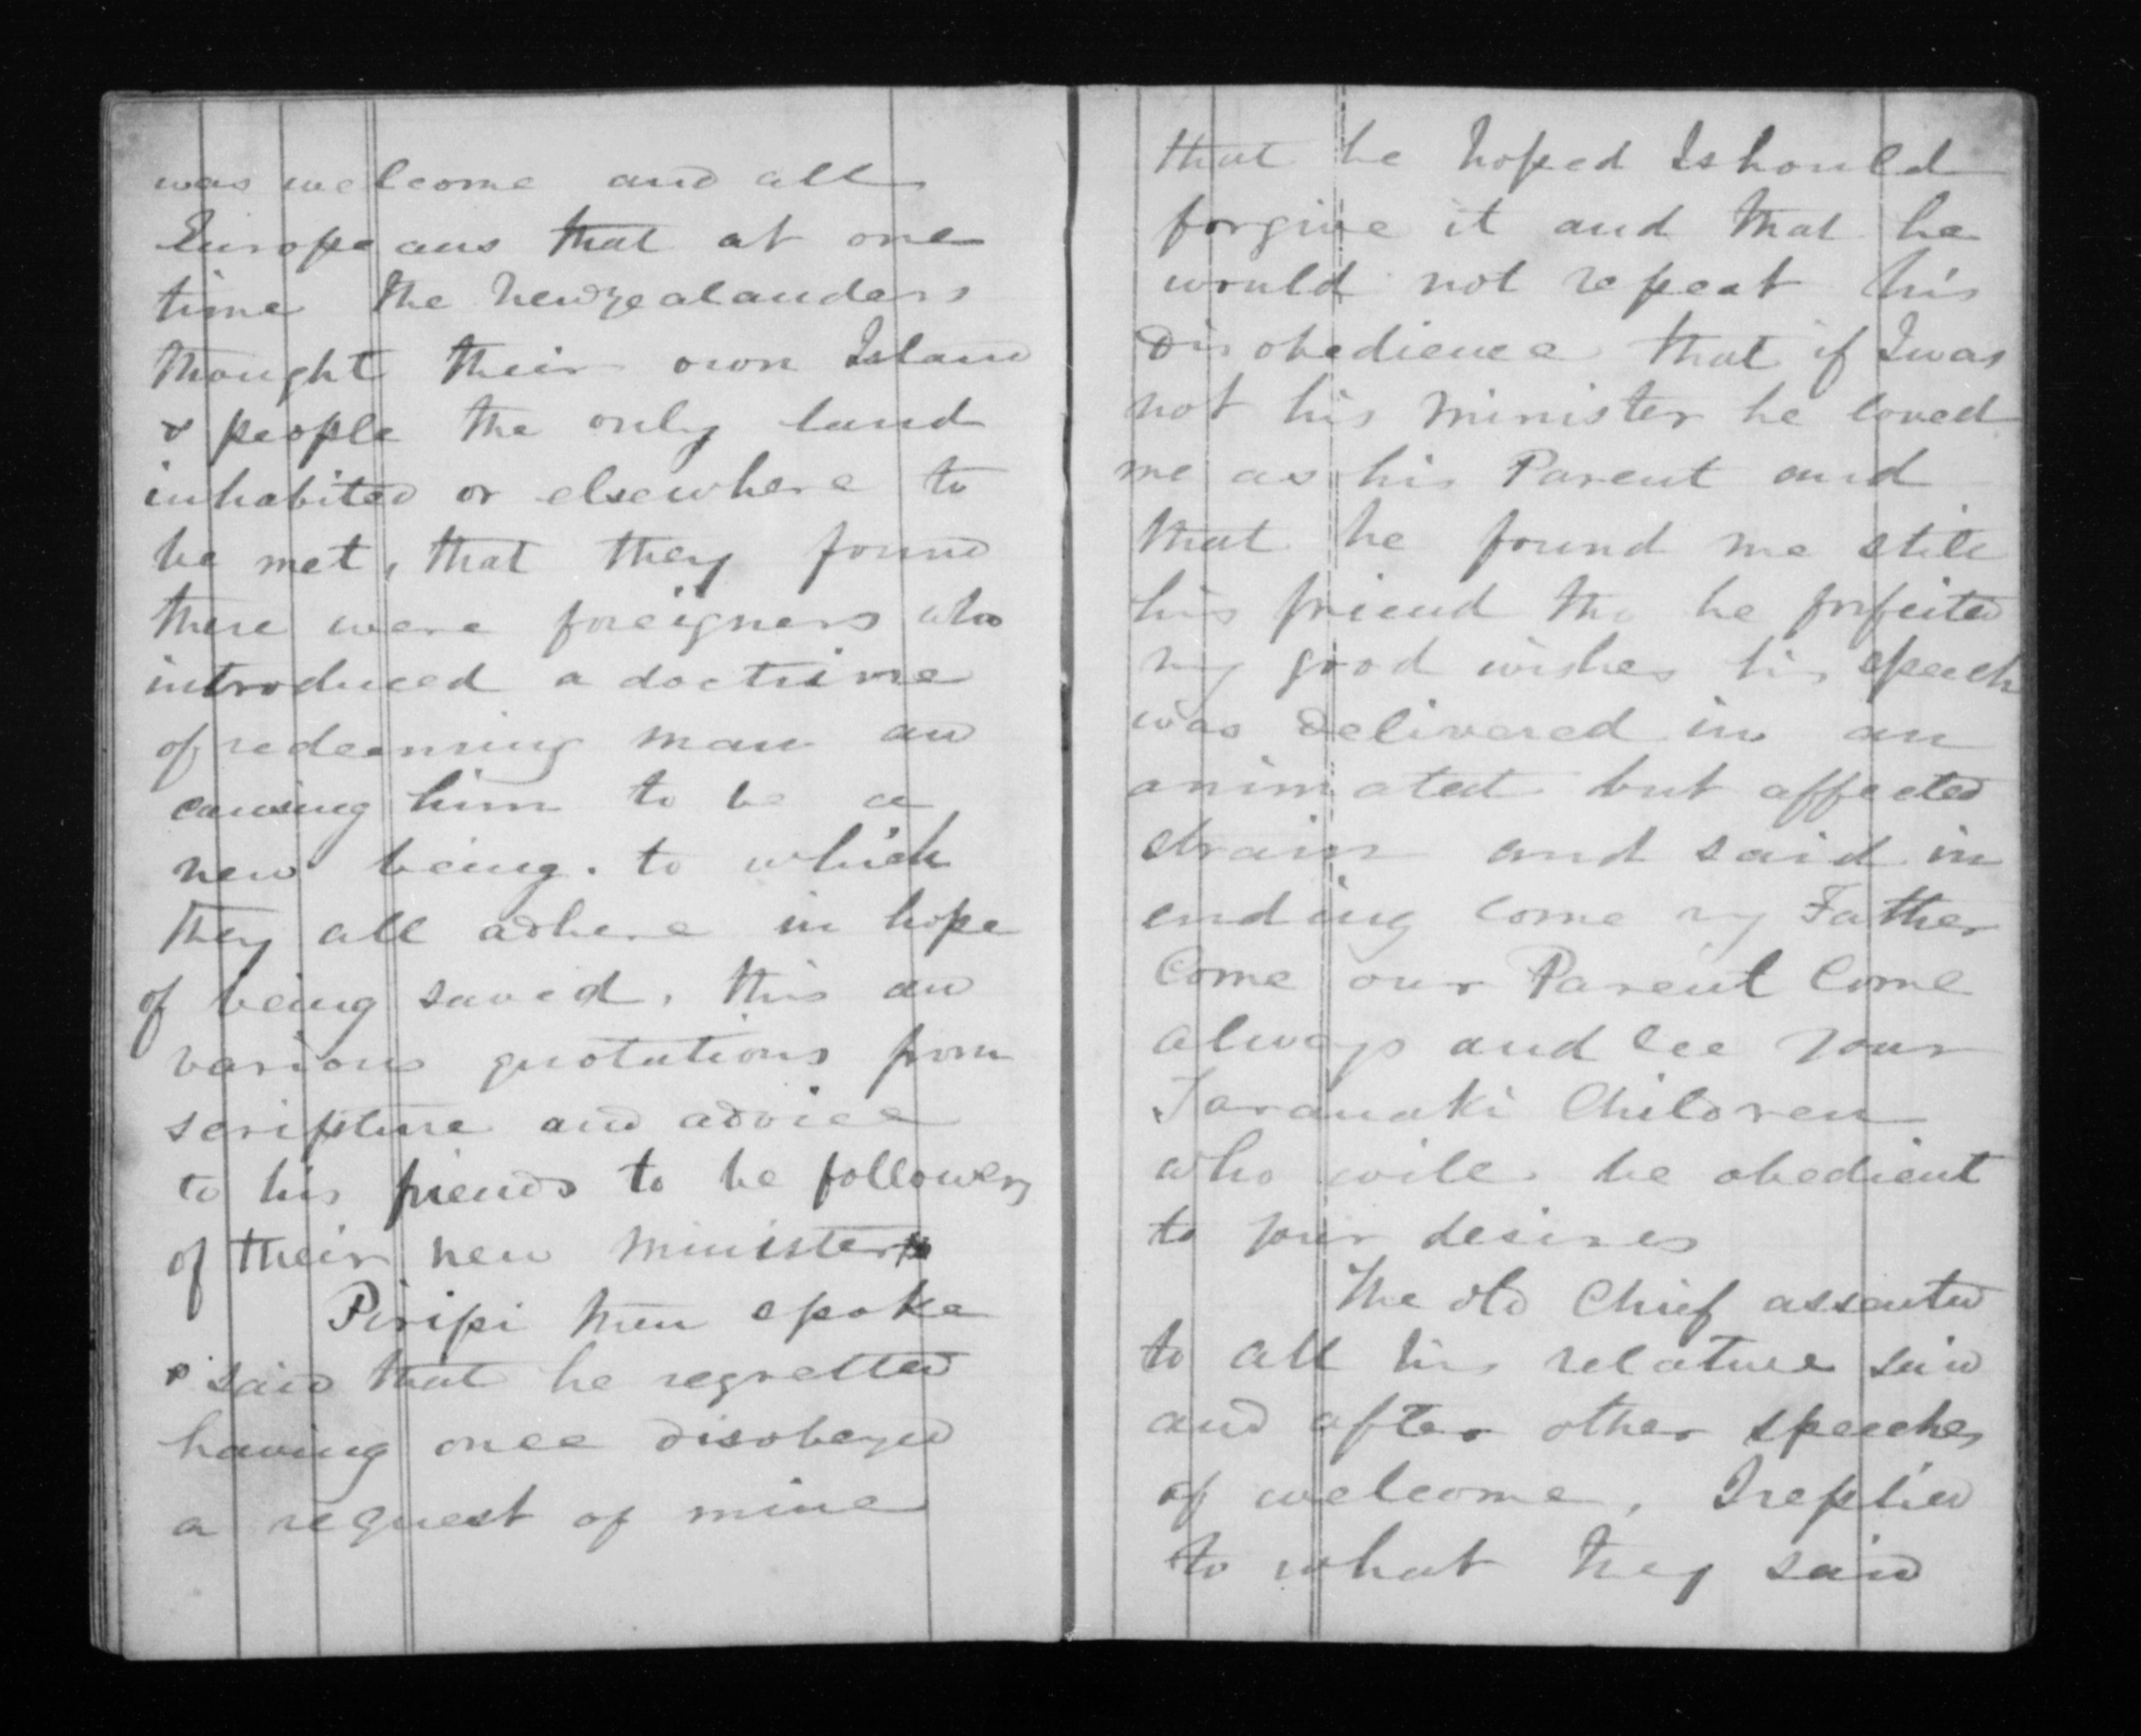 was welcome and all
Europeans that at one
time the Newzealanders
thought their own Island
& people the only land
inhabited or elsewhere to
be met, that they found
there were foreigners who
introduced a doctrine
of redeeming man and
causing him to be a
new being. to which
they all adhere in hope
of being saved, this and
various quotations from
scripture and advice
to his friends to be followers
of their new minister
Piripi then spoke
& said that he regretted
having once disobeyed
a request of mine
that he hoped I should
forgive it and that he
would not repeat his
Disobedience that if I was
not his minister he loved
me as his Parent and
that he found me still
his friend tho he forfeited
my good wishes his speech
was delivered in an
animated but affected
strain and said in
ending come my Father
Come our Parent Come
always and see your
Taranaki Children
who will be obedient
to your desires
The old Chief assented
to all his relative said
and after other speeches
of welcome, I replied
to what they said